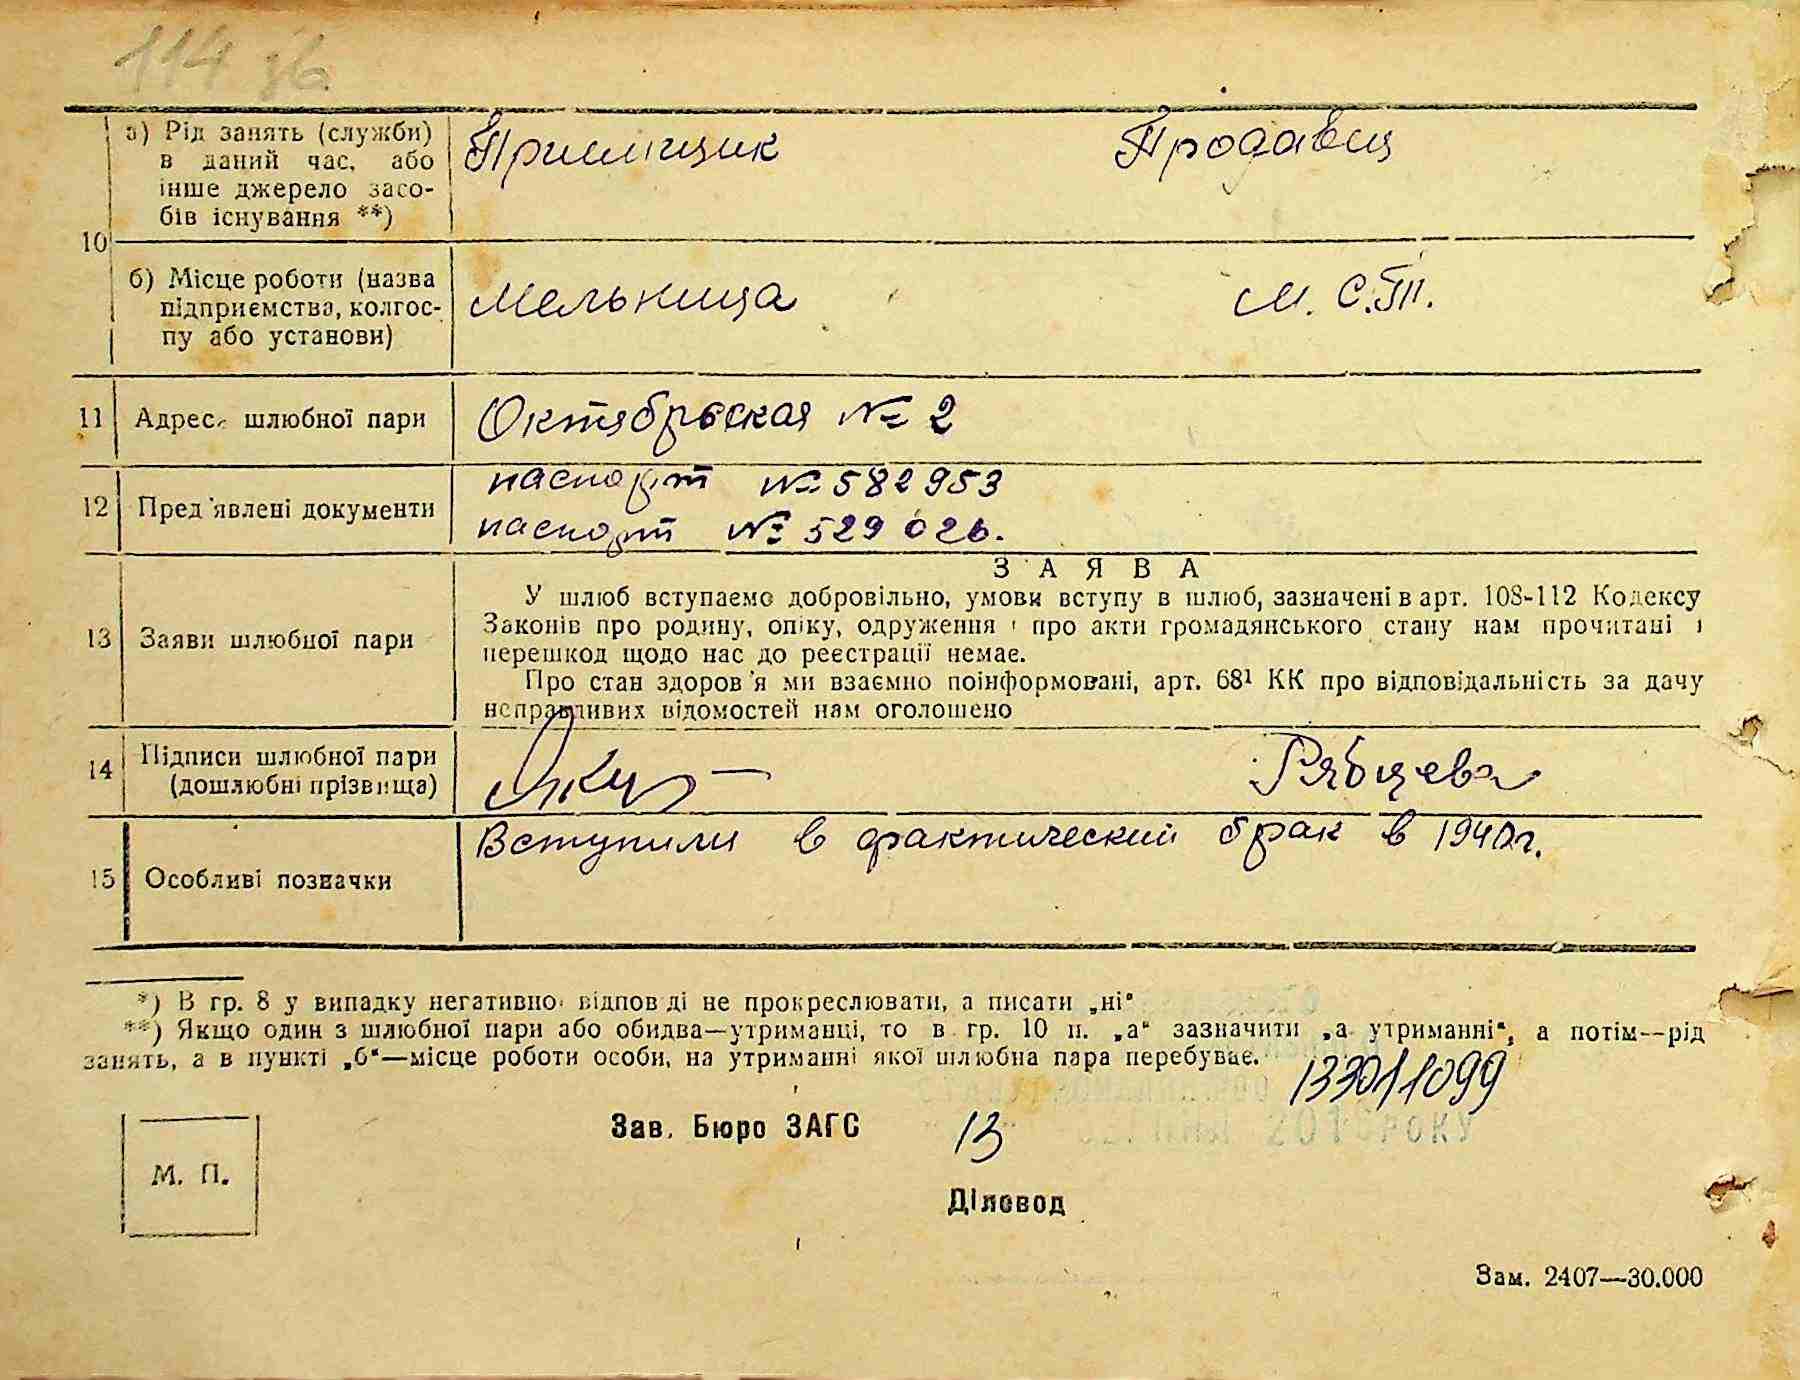 114 зв.
а) Рід занять (служби) Приемщик Продавец
в даний час, або
інше джерело засо-
бів існування **)
10
б) Місце роботи (назва Мельница М. С.П.
підприємства, колгос-
пу або установи)
11 Адреса шлюбної пари Октябрьская № 2
паспорт № 582953
12 Пред'явлені документи
паспорт № 529026.
ЗАЯВА
У шлюб вступаємо добровільно, умови вступу в шлюб, зазначені в арт. 108-112 Кодексу
Законів про родину, опіку, одруження і про акти громадянського стану нам прочитані і
13 Заяви шлюбної пари
перешкод щодо нас до реєстрації немає.
Про стан здоров'я ми взаємно поінформовані, арт. 68¹ КК про відповідальність за дачу
неправдивих відомостей нам оголошено
14 Підписи шлюбної пари Рябцева
(дошлюбні прізвища)
Вступили в фактический брак в 1940г.
15 Особливі позначки
*) В гр. 8 у випадку негативної відповіді не прокреслювати, а писати „ні“
**) Якщо один з шлюбної пари або обидва—утриманці, то в гр. 10 п. „а“ зазначити „на утриманні“, а потім—рід
занять, а в пункті „б“—місце роботи особи, на утриманні якої шлюбна пара перебуває.
133011099
Зав. Бюро ЗАГС 13
РОКУ
М. П.
Діловод
Зам. 2407—30.000